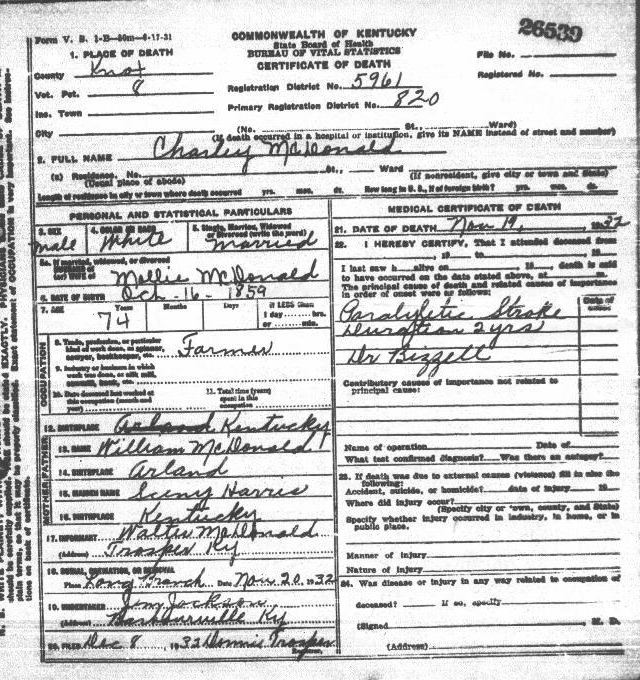 26539
Form V. S. 1-B—50m—6-17-31
COMMONWEALTH OF KENTUCKY
State Board of Health
BUREAU OF VITAL STATISTICS
CERTIFICATE OF DEATH
1. PLACE OF DEATH
County Knox
Vot. Pct. 8
Ins. Town
City
File No.
Registered No.
Registration District No. 5961
Primary Registration District No. 820
(No. St., Ward)
(If death occurred in a hospital or institution, give its NAME instead of street and number)
2. FULL NAME Charley McDonald
(a) Residence. No. St., Ward (If nonresident, give city or town and State)
(Usual place of abode)
Length of residence in city or town where death occurred yrs. mos. ds. How long in U. S., if of foreign birth? yrs. mos. ds.
PERSONAL AND STATISTICAL PARTICULARS
3. SEX male
4. COLOR OR RACE White
5. Single, Married, Widowed
or Divorced (write the word)
married
5a. If married, widowed, or divorced
HUSBAND of
(or) WIFE of Mollie McDonald
6. DATE OF BIRTH Och - 16 - 1859
7. AGE Years 74 Months Days If LESS than
1 day hrs.
or min.
OCCUPATION
8. Trade, profession, or particular
kind of work done, as spinner,
sawyer, bookkeeper, etc. Farmer
9. Industry or business in which
work was done, as silk mill,
sawmill, bank, etc.
10. Date deceased last worked at
this occupation (month and
year)
11. Total time (years)
spent in this
occupation
12. BIRTHPLACE Kentucky
MOTHER FATHER
13. NAME William McDonald
14. BIRTHPLACE Arland
15. MAIDEN NAME Suny Harris
16. BIRTHPLACE Kentucky
17. INFORMANT Walter McDonald
(Address) Trosper Ky
18. BURIAL, CREMATION, OR REMOVAL
Place Long Branch Date Nov 20 1932
19. UNDERTAKER Jim Jackson
(Address) Barbourville Ky
20. FILED Dec 8 1932 Donnie Trosper
Registrar.
MEDICAL CERTIFICATE OF DEATH
21. DATE OF DEATH Nov 19, 1932
22. I HEREBY CERTIFY, That I attended deceased from
, 19 to , 19
I last saw h alive on , 19 , death is said
to have occurred on the date stated above, at m.
The principal cause of death and related causes of importance
in order of onset were as follows:
Date of
onset
Paralyetic Stroke
Durgtion 2 yrs
Dr Bizzell
Contributory causes of importance not related to
principal cause:
Name of operation Date of
What test confirmed diagnosis? Was there an autopsy?
23. If death was due to external causes (violence) fill in also the
following:
Accident, suicide, or homicide? date of injury 19
Where did injury occur?
(Specify city or town, county, and State)
Specify whether injury occurred in industry, in home, or in
public place.
Manner of injury
Nature of injury
24. Was disease or injury in any way related to occupation of
deceased? If so, specify
(Signed) M. D.
(Address)